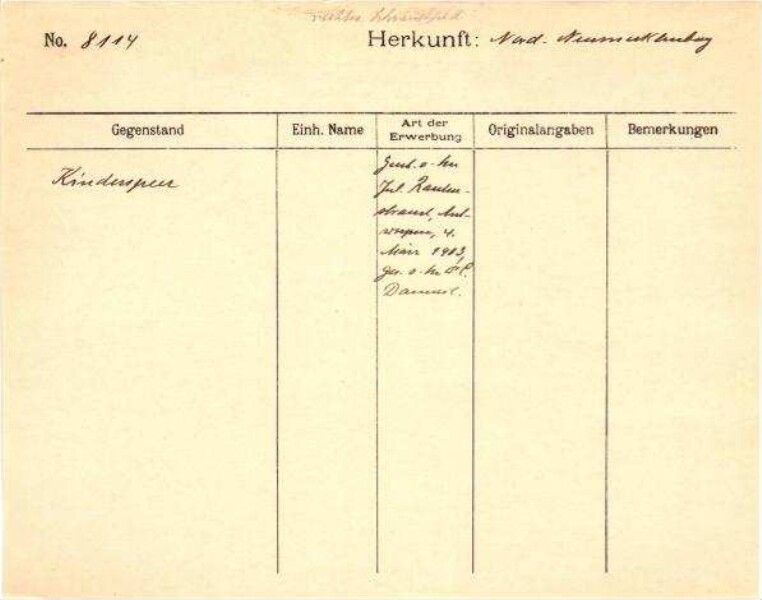 No. 8114
Herkunft: Nord-Neumecklenburg
Gegenstand
Einh. Name
Art der Erwerbung
Originalangaben
Bemerkungen
Kinderspeer
Jul. Rauten-
strauch, Ant-
werpen, 4.
März 1903,
ges. v.